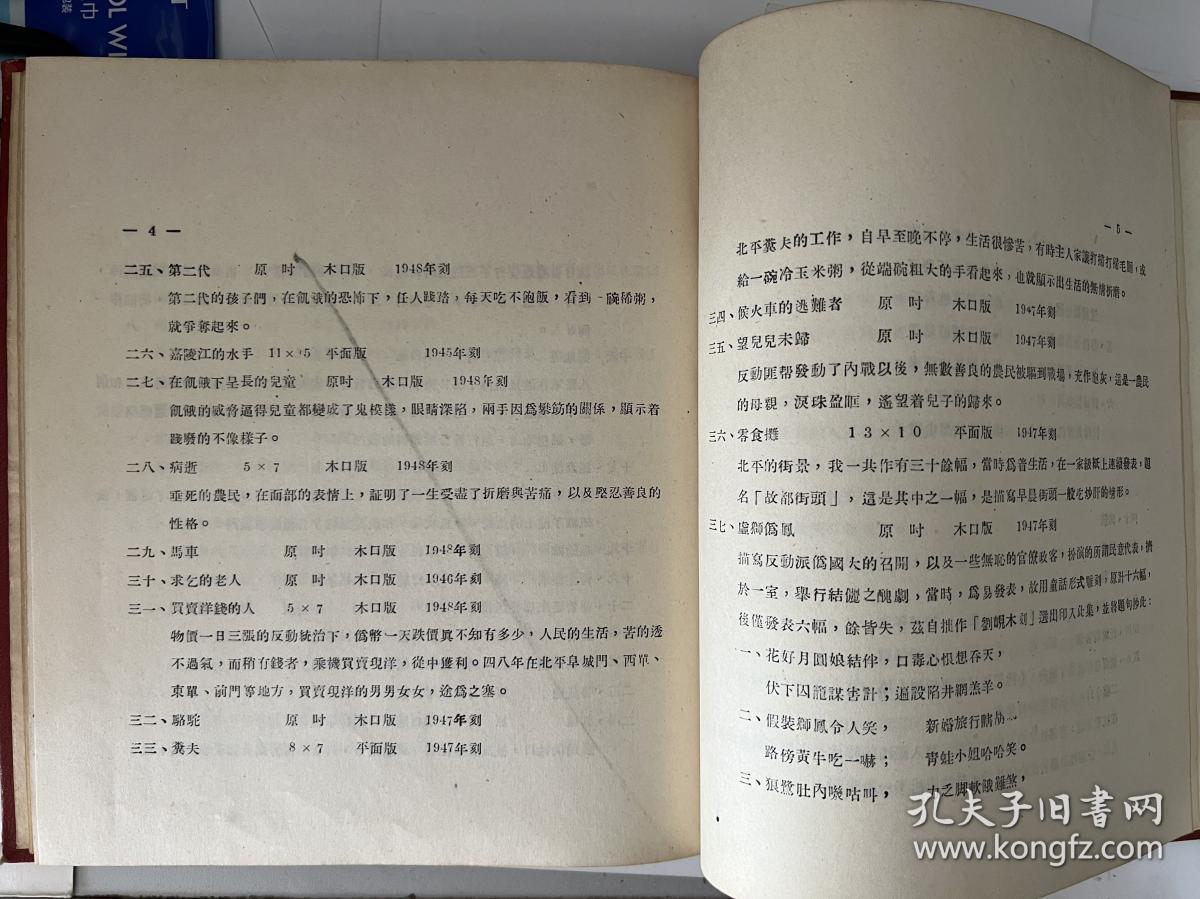 — 4 —
二五、第二代 原吋 木口版 1948年刻
第二代的孩子們，在飢餓的恐怖下，任人踐踏，每天吃不飽飯，看到一碗稀粥，
就爭奪起來。
二六、嘉陵江的水手 11×15 平面版 1945年刻
二七、在飢餓下呈長的兒童 原吋 木口版 1948年刻
飢餓的威脅逼得兒童都變成了鬼模樣，眼睛深陷，兩手因爲攀筋的關係，顯示着
踐廢的不像樣子。
二八、病逝 5×7 木口版 1948年刻
垂死的農民，在面部的表情上，証明了一生受盡了折磨與苦痛，以及堅忍善良的
性格。
二九、馬車 原吋 木口版 1948年刻
三十、求乞的老人 原吋 木口版 1946年刻
三一、買賣洋錢的人 5×7 木口版 1948年刻
物價一日三漲的反動統治下，僞幣一天跌價眞不知有多少，人民的生活，苦的透
不過氣，而稍有錢者，乘機買賣現洋，從中獲利。四八年在北平阜城門、西單、
東單、前門等地方，買賣現洋的男男女女，途爲之塞。
三二、駱駝 原吋 木口版 1947年刻
三三、糞夫 8×7 平面版 1947年刻
— 5 —
北平糞夫的工作，自早至晚不停，生活很慘苦，有時主人家讓打掃打掃毛厠，或
給一碗冷玉米粥，從端碗粗大的手看起來，也就顯示出生活的無情折磨。
三四、候火車的逃難者 原吋 木口版 1947年刻
三五、望兒兒未歸 原吋 木口版 1947年刻
反動匪帮發動了內戰以後，無數善良的農民被驅到戰場，充作炮灰，這是一農民
的母親，淚珠盈眶，遙望着兒子的歸來。
三六、零食攤 13×10 平面版 1947年刻
北平的街景，我一共作有三十餘幅，當時爲着生活，在一家報紙上連續發表，題
名「故都街頭」，這是其中之一幅，是描寫早晨街頭一般吃炒肝的情形。
三七、虛獅僞鳳 原吋 木口版 1947年刻
描寫反動派僞國大的召開，以及一些無恥的官僚政客，扮演的所謂民意代表，擠
於一室，舉行結儷之醜劇，當時，爲易發表，故用童話形式雕刻，原計十六幅，
後僅發表六幅，餘皆失，茲自拙作「劉峴木刻」選出印入此集，並將題句抄此：
一、花好月圓娘結伴，口毒心恨想吞天，
伏下囚籠謀害計；逼設陷井網羔羊。
二、假裝獅鳳令人笑， 新婚旅行瞎
路傍黃牛吃一嚇； 靑蛙小姐哈哈笑。
三、狼鷺肚內嘰咕叫， 力乏脚軟餓難煞，
孔夫子旧书网
www.kongfz.com